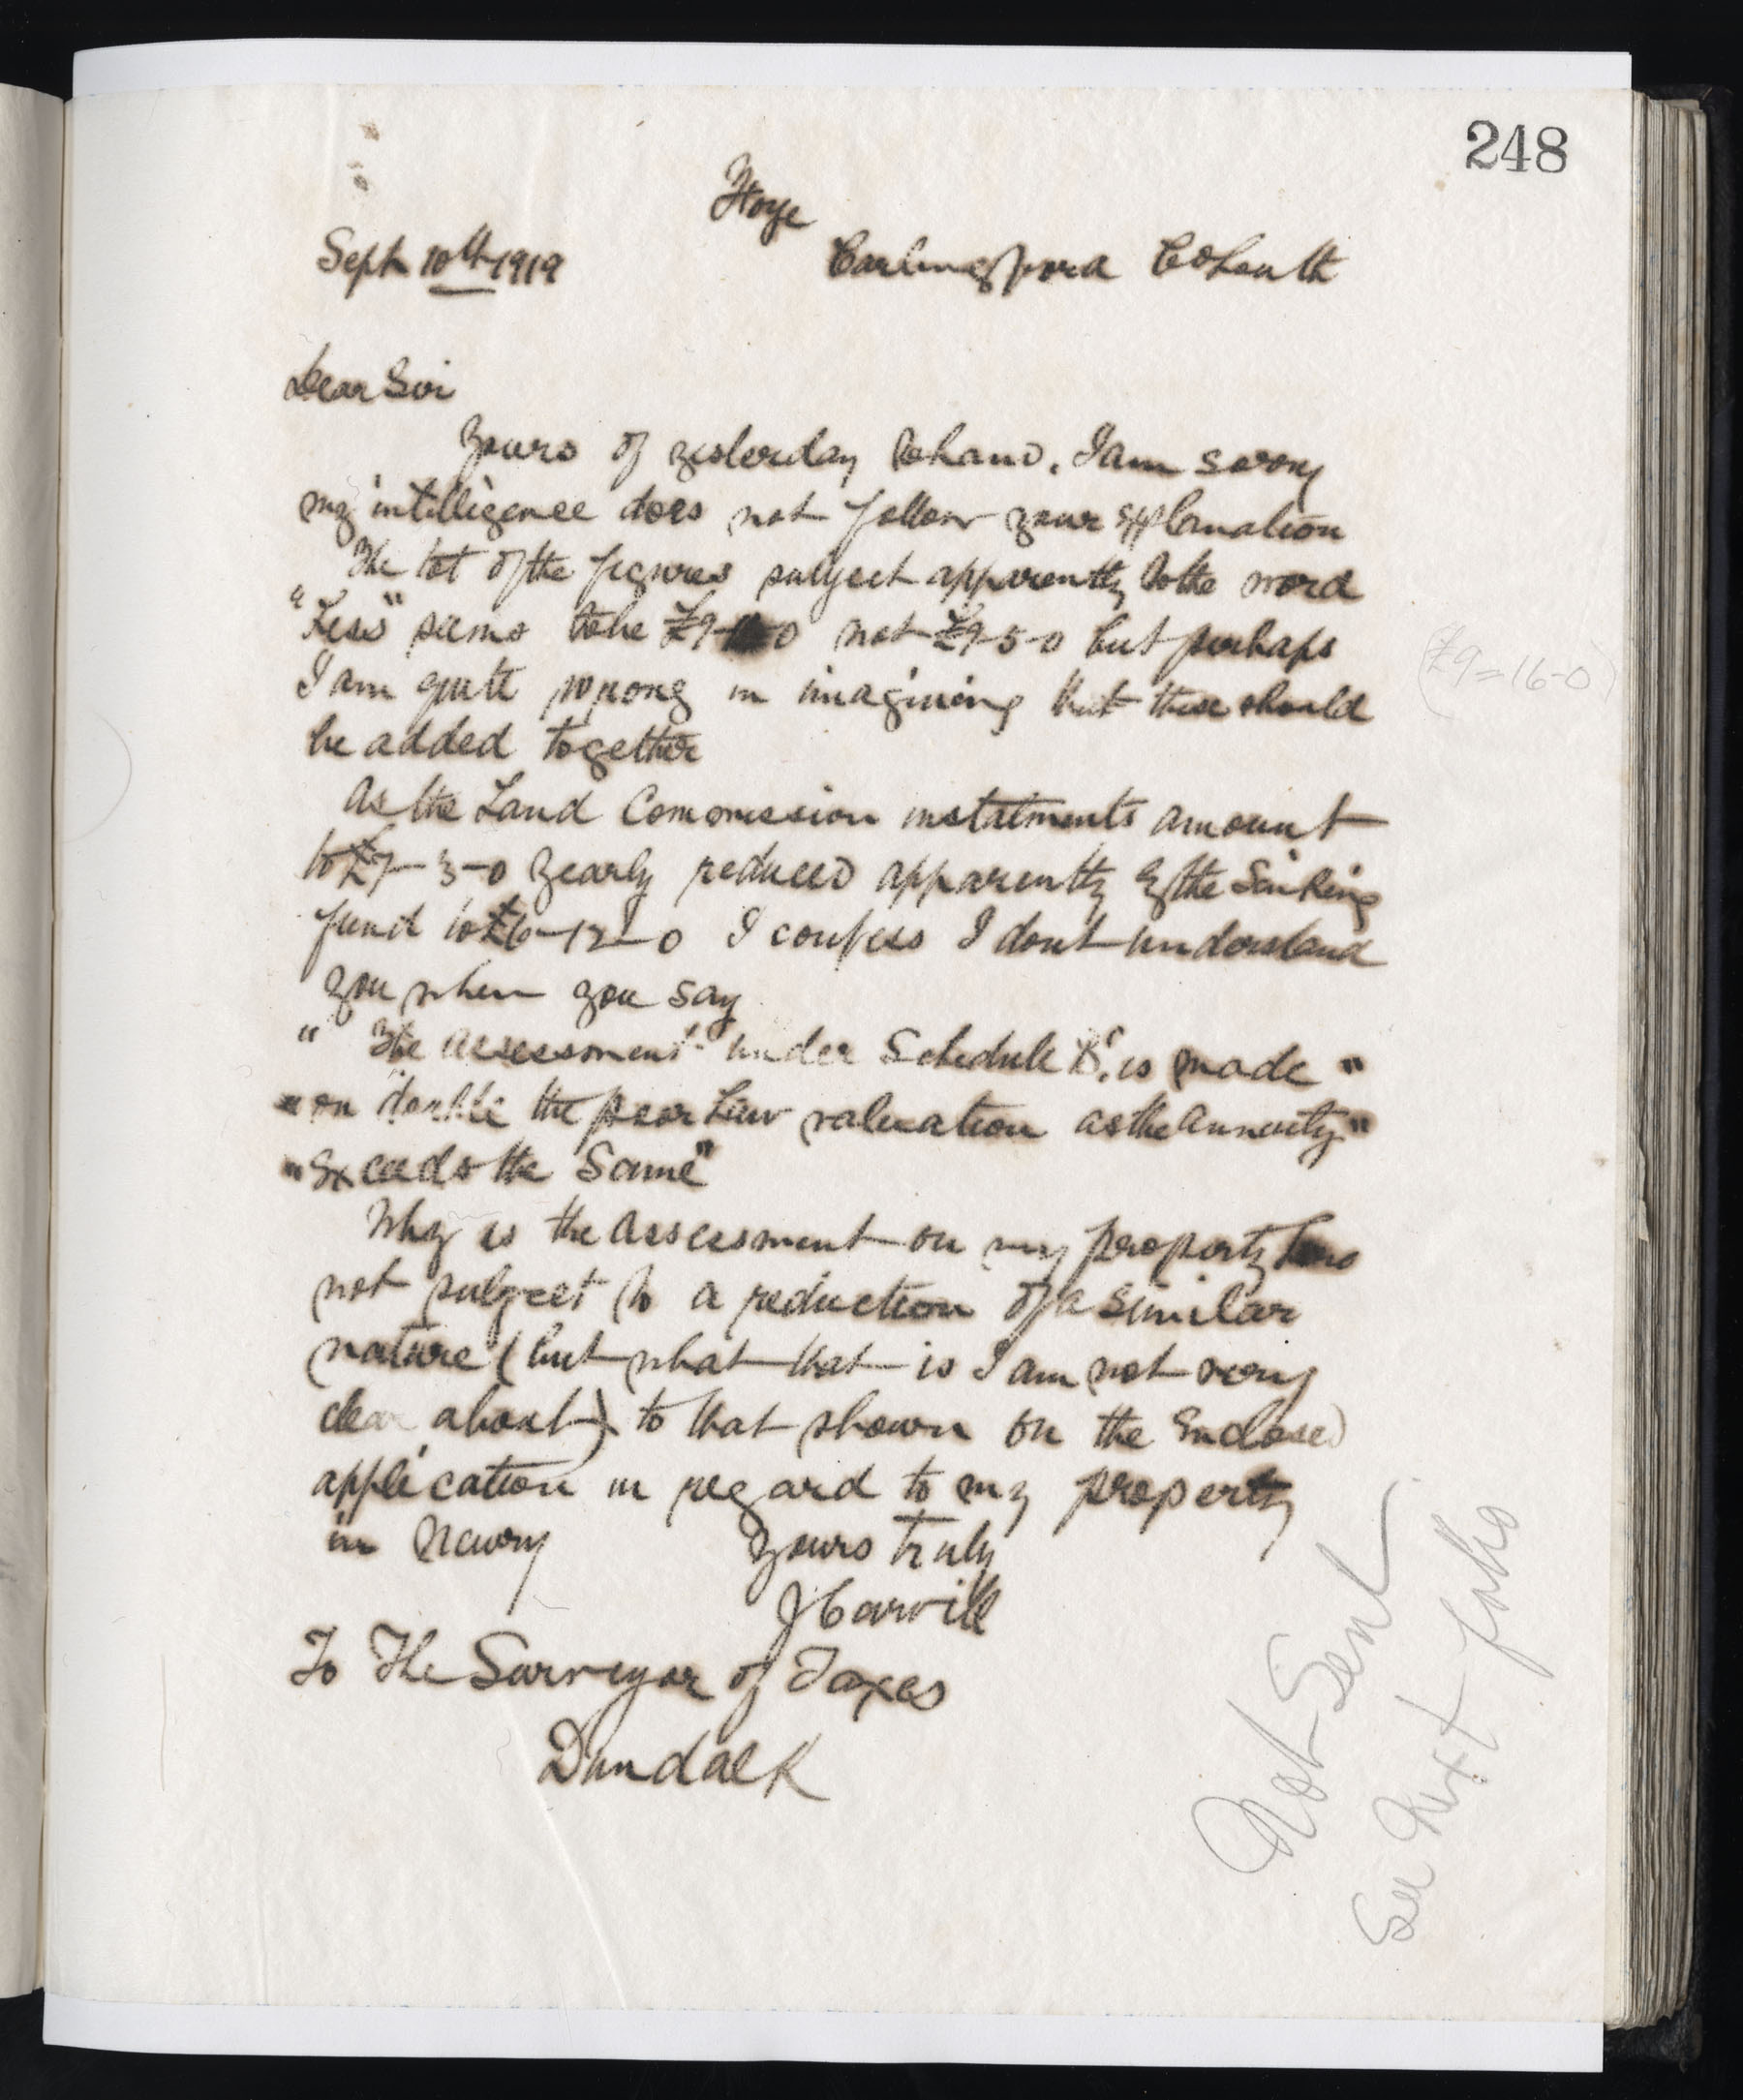 248
Sept 10th 1919
Carlingford Co Louth
Dear Sir
Yours of yesterday to hand. I am sorry
my intelligence does not follow your explanation
The tot of the figures subject apparently to the word
"Less" seems to be £9- -0 not £9-5-0 but perhaps
(£9=16-0)
I am quite wrong in imagining that these should
be added together
As the Land Commission instalments amount
to £7-3-0 yearly reduced apparently by the Sinking
fund to £6-12-0 I confess I dont understand
you when you say
" The assessment under Schedule B. is made "
" on double the poor Law valuation as the annuity "
" Exceeds the Same "
Why is the assessment on my property here
not subject to a reduction of a similar
nature (but what that is I am not very
clear about) to that shown on the Enclosed
application in regard to my property
in Newry
Yours truly
J Carvill
To The Surveyor of Taxes
Dundalk
Not Sent
See Next folio